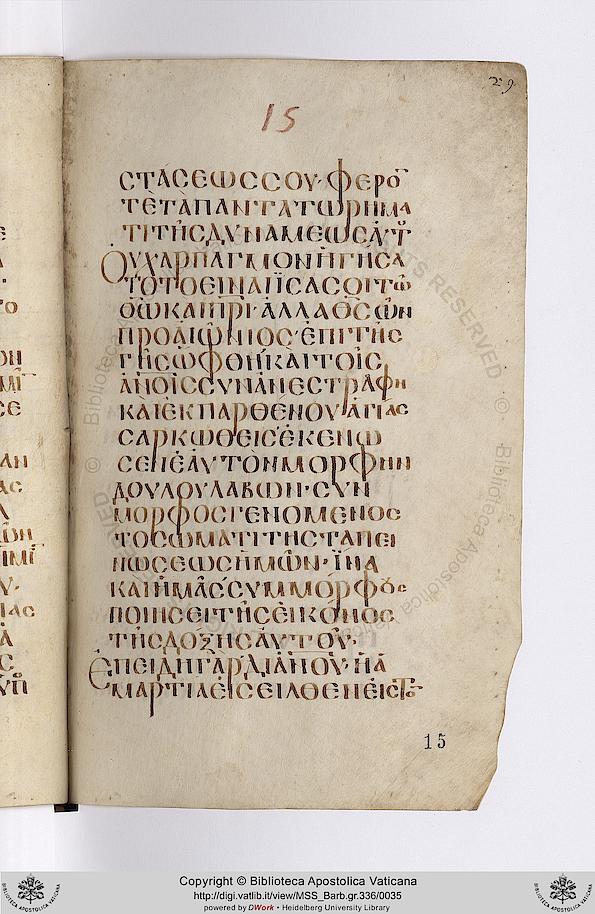 29
15
CΤΑCΕωCCΟΥ· ΦΕΡΟ̅
ΤΕΤΑΠΑΝΤΑΤωΡΗΜΑ
ΤΙΤΗCΔΥΝΑΜΕωCΑΥΤ̅
ΟΥΧΑΡΠΑΓΜΟΝΗΓΗCΑ
ΤΟΤΟΕΙΝΑΙΙCΑCΟΙΤω̅
Θ̅ωΚΑΙΠ̅ΡΙ· ΑΛΛΑΘ̅CωΝ
ΠΡΟΑΙωΝΙΟC· ΕΠΙΤΗC
ΓΗCωΦΘΗΚΑΙΤΟΙC
ΑΝΟΙCCΥΝΑΝΕCΤΡΑΦΗ
ΚΑΙΕΚΠΑΡΘΕΝΟΥΑΓΙΑC
CΑΡΚωΘΕΙCΕΚΕΝω
CΕΝΕΑΥΤΟΝΜΟΡΦΗΝ
ΔΟΥΛΟΥΛΑΒωΝ· CΥΝ
ΜΟΡΦΟCΓΕΝΟΜΕΝΟC
ΤΟCωΜΑΤΙΤΗCΤΑΠΕΙ
ΝωCΕωCΗΜωΝ· ΙΝΑ
ΚΑΙΗΜΑCCΥΜΜΟΡΦΟΥC
ΠΟΙΗCΕΙΤΗCΕΙΚΟΝΟC
ΤΗCΔΟΞΗCΑΥΤΟΥ·
ΕΠΕΙΔΗΓΑΡΔΙΑΝΟΥ· ΗΑ
ΜΑΡΤΙΑΕΙCΕΙΛΘΕΝΕΙCΤΟ̅
15
© Biblioteca Apostolica Vaticana
ALL RIGHTS RESERVED
Copyright © Biblioteca Apostolica Vaticana
http://digi.vatlib.it/view/MSS_Barb.gr.336/0035
powered by DWork • Heidelberg University Library